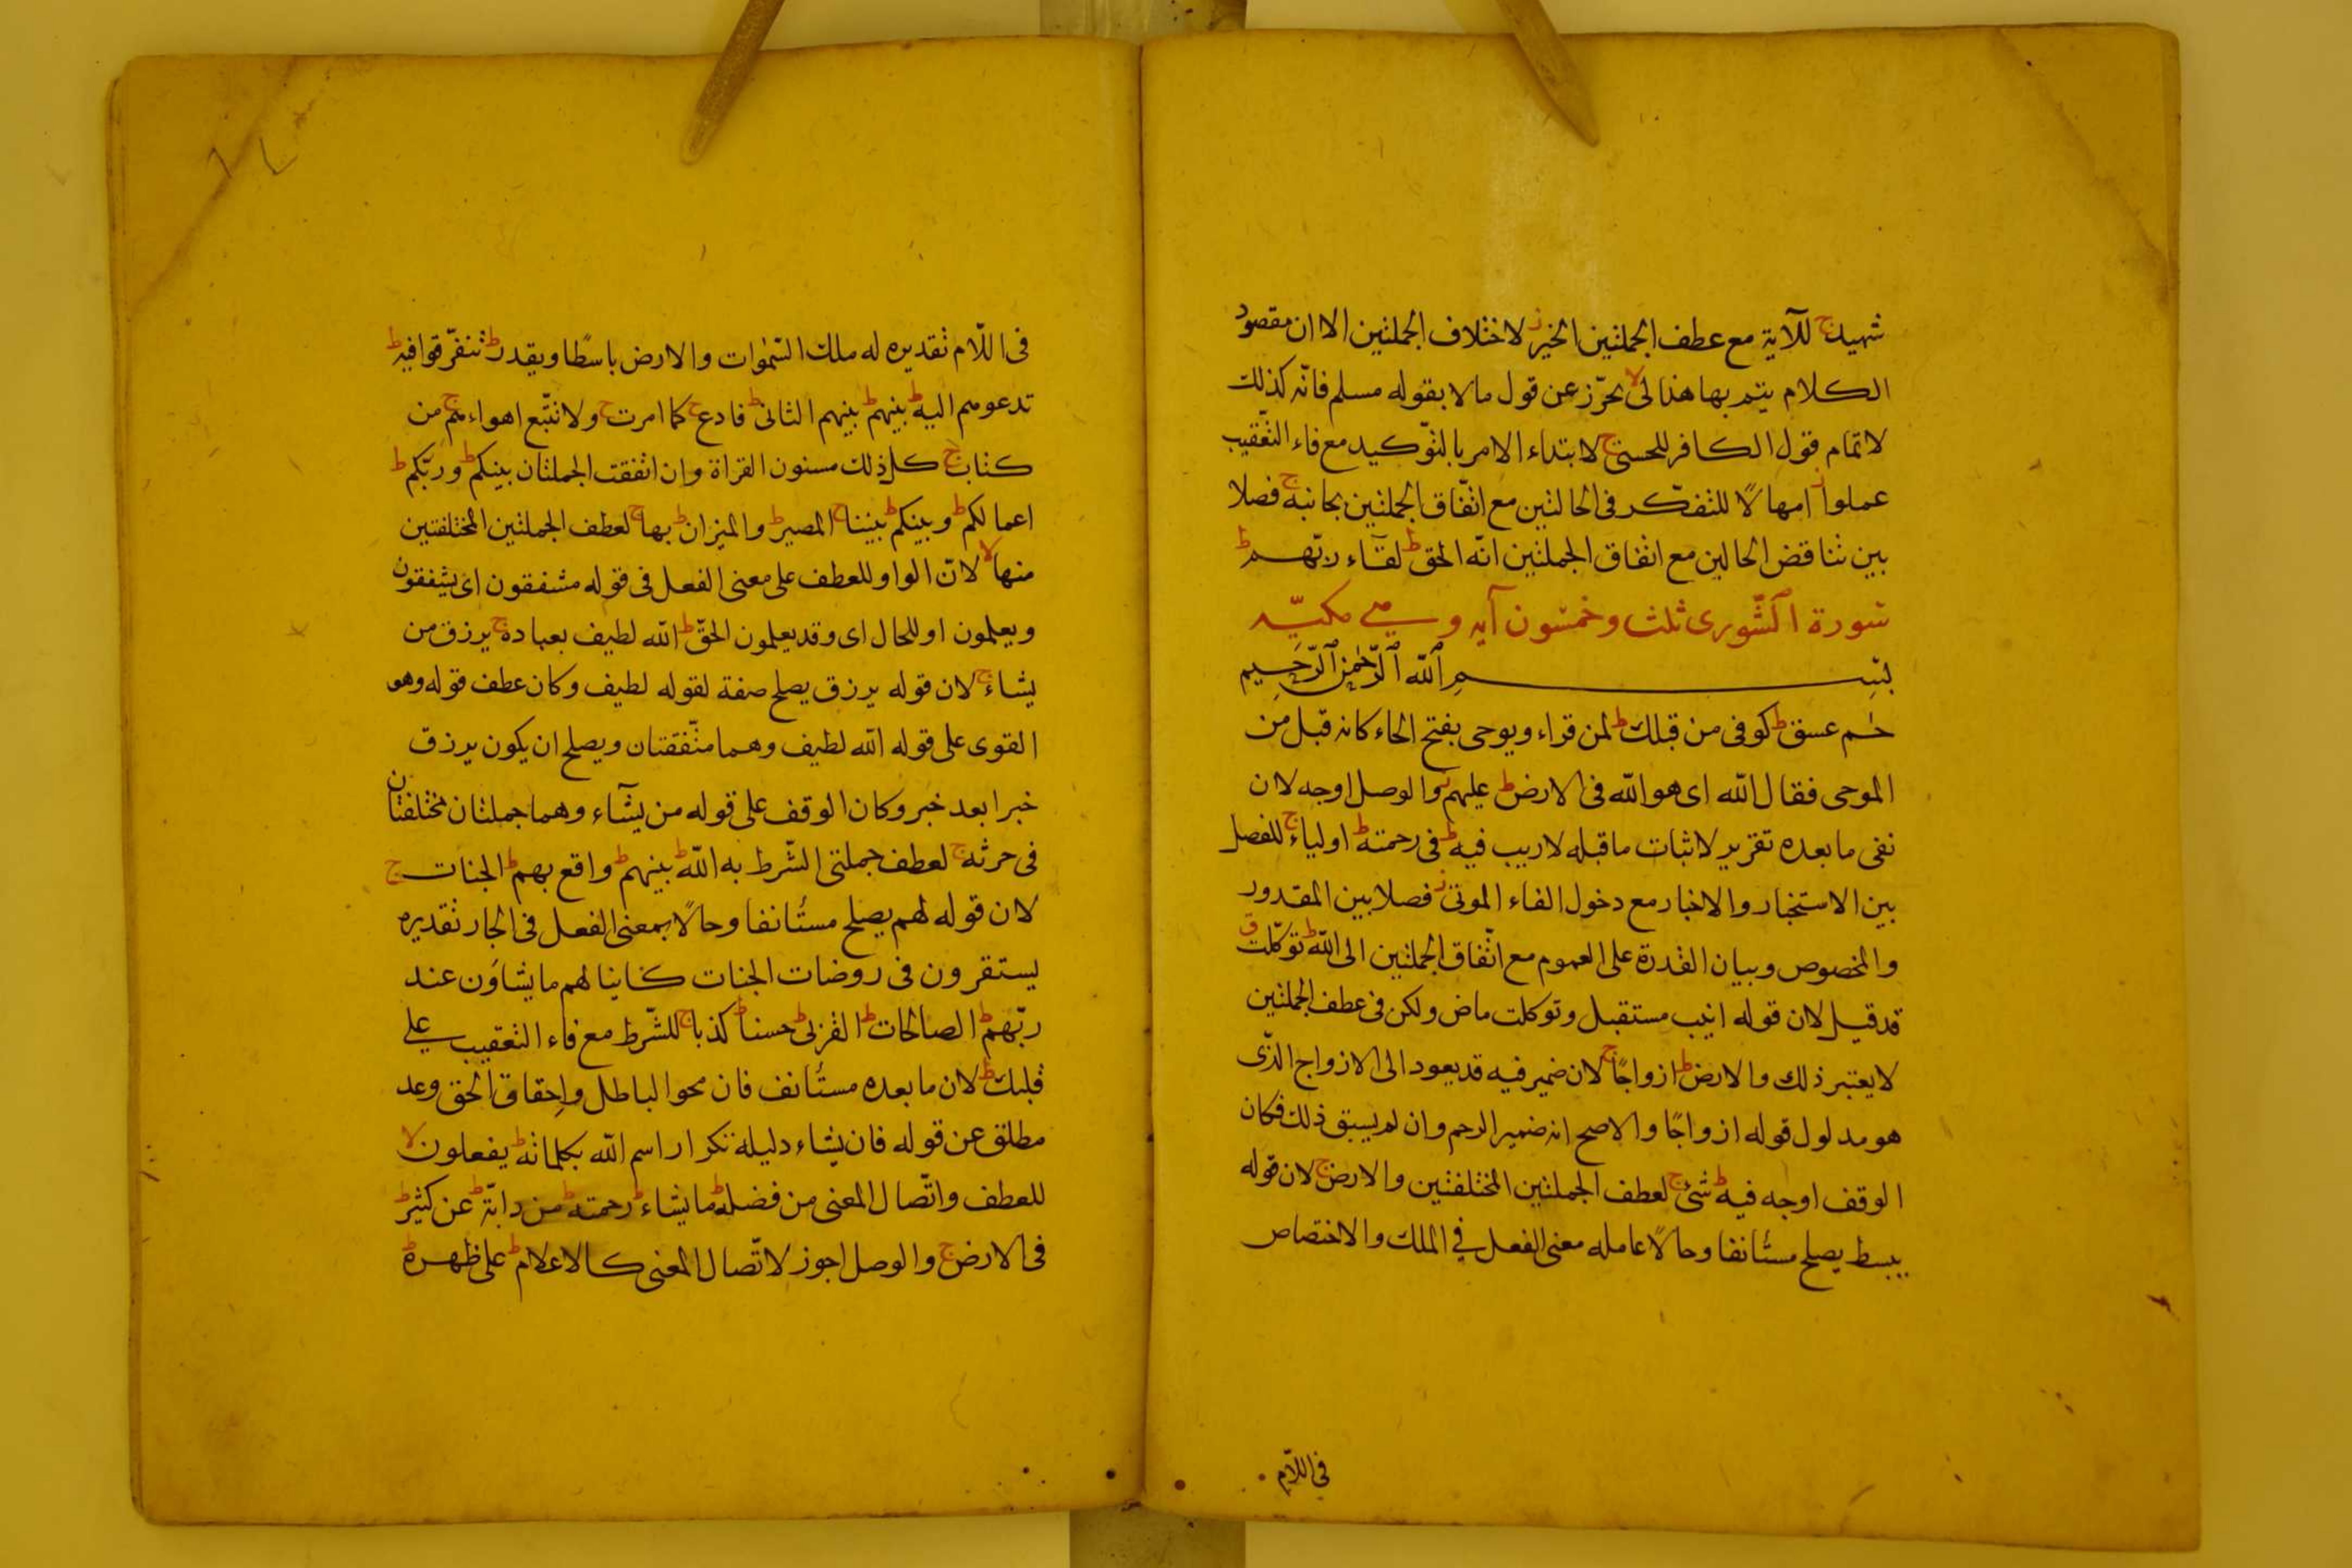 شهيد ج للآية مع عطف الجملتين الخير ز لاختلاف الجملتين الا ان مقصود
الكلام يتم بها هذا لى لا يحرّز عن قول مالا بقوله مسلم فانّه كذلك
لاتمام قول الكافر للحسنى ج لابتداء الامر بالتوّكيد مع فاء التعّقيب
عملوا ز امهالًا للتفكّر فى الحالتين مع اتّفاق الجملتين بجانبه ج فصلا
بين تناقض الحالين مع اتفاق الجملتين انّه الحق ط لقآء ربّهم ط
سورة الشّورى ثلث وخمسون آيه وهى مكيّه
بسم الله الرّحمن الرّحيم
حٰم عسق ط كوفى من قبلك ط لمن قراء ويوحى بفتح الحاء كانه قبل من
الموحى فقال الله اى هو الله فى الارض ط عليهم ز والوصل اوجه لان
نفى ما بعده تقرير لاثبات ماقبله لاريب فيه ط فى رحمته ط اولياء ج للفصل
بين الاستخبار والاخبار مع دخول الفاء الموتى ز فصلا بين المقدور
والمخصوص وبيان القدرة على العموم مع اتّفاق الجملتين الى الله ط توكّلت ق
قد قيل لان قوله انيب مستقبل وتوكلت ماض ولكن فى عطف الجملتين
لايعتبر ذلك والارض ط ازواجًا ج لان ضمير فيه قد يعود الى الازواج الذّى
هو مدلول قوله ازواجًا والاصح انه ضمير الرحم وان لم يسبق ذلك فكان
الوقف اوجه فيه ط شئ ج لعطف الجملتين المختلفتين والارض ج لان قوله
يبسط يصلح مستٔانفا وحالًا عامله معنى الفعل في الملك والاختصاص
في اللّام
فى اللّام تقديره له ملك السّمٰوات والارض باسطًا ويقدر ط تتفرّقوا فيه ط
تدعوهم اليه ط بينهم ط بينهم الثانى ط فادع ج كما امرت ج ولاتتّبع اهواءهم ج من
كتاب ج كل ذلك مسنون القراة وان اتفقت الجملتان بينكم ط وربّكم ط
اعمالكم ط وبينكم ط بيننا ج المصير ط والميزان ط بها ج لعطف الجملتين المختلفتين
منها لا لانّ الواو للعطف على معنى الفعل فى قوله مشفقون اى يشفقون
ويعلمون او للحال اى وقد يعلمون الحقّ ط الله لطيف بعباده ج يرزق من
يشاء ج لان قوله يرزق يصلح صفة لقوله لطيف وكان عطف قوله وهو
القوى على قوله الله لطيف وهما متّفقتان ويصلح ان يكون يرزق
خبرا بعد خبر وكان الوقف على قوله من يشآء وهما جملتان مختلفتان
فى حرثه ج لعطف جملتى الشّرط به الله ط بينهم ط واقع بهم ط الجنات ج
لان قوله لهم يصلح مستٔانفا وحالًا بمعنى الفعل فى الجار تقديره
يستقرون فى روضات الجنات كاينا لهم ما يشاؤن عند
ربّهم ط الصالحات ط القربى ط حسنا ط كذبا ج للشّرط مع فاء التعقيب على
قلبك ط لان ما بعده مستٔانف فان محو الباطل واحقاق الحق وعد
مطلق عن قوله فان يشاء دليله تكرار اسم الله بكلماته ط يفعلون لا
للعطف واتّصال المعنى من فضله ط ما يشاء ط رحمته ط من دابّة ط عن كثير ط
فى الارض ج والوصل اجوز لاتّصال المعنى كالاعلام ط على ظهره ط